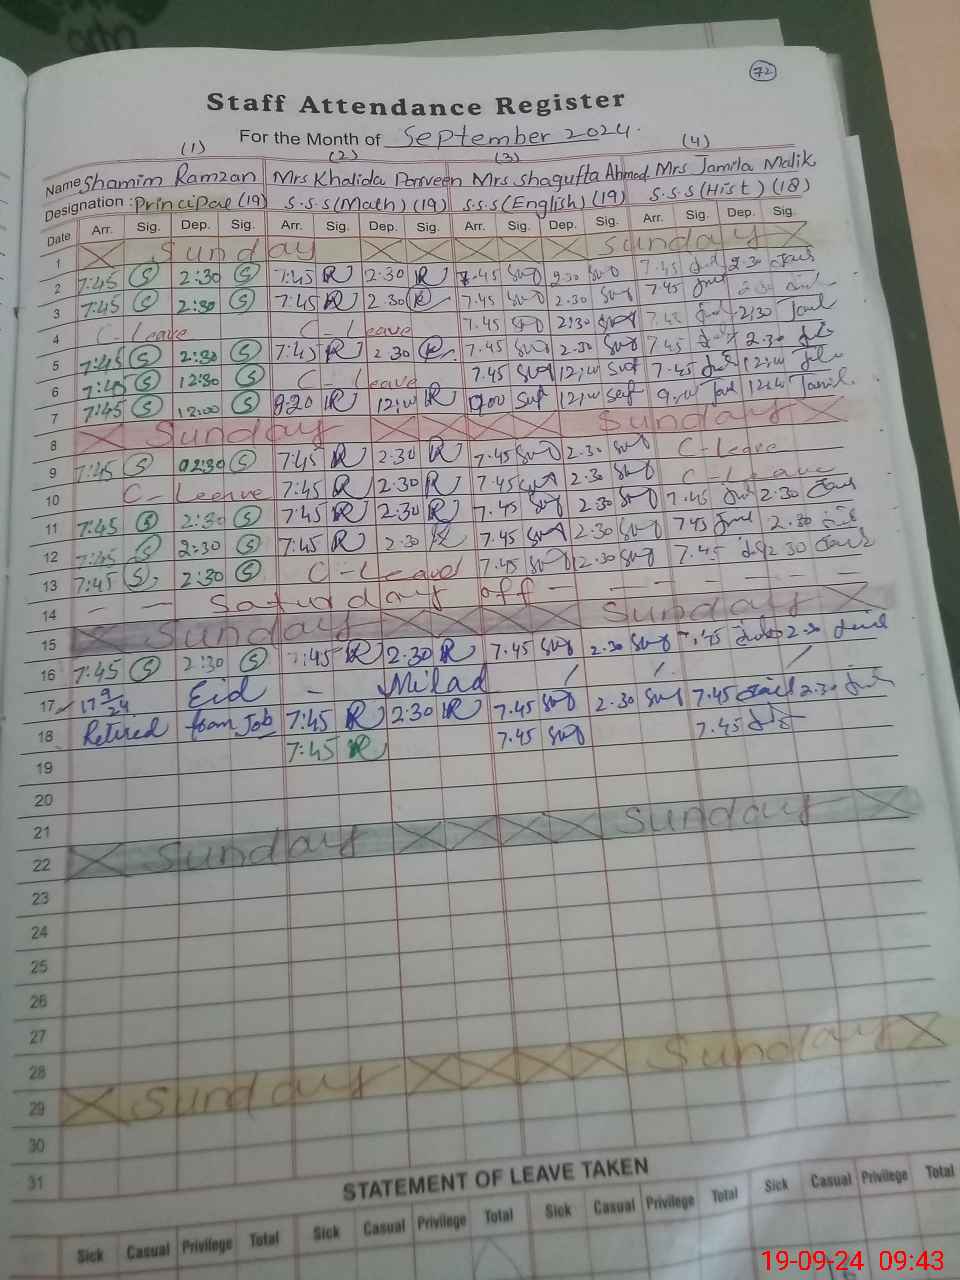 72
Staff Attendance Register
For the Month of September 2024.
(1) (2) (3) (4)
Name Shamim Ramzan Mrs Khalida Parveen Mrs Shagufta Ahmad Mrs Jamila Malik
Designation : Principal (19) S.S.S (Math) (19) S.S.S (English) (19) S.S.S (Hist) (18)
Date Arr. Sig. Dep. Sig. Arr. Sig. Dep. Sig. Arr. Sig. Dep. Sig. Arr. Sig. Dep. Sig.
1 Sunday Sunday
2 7:45 S 2:30 S 7:45 R 2.30 R 7.45 2.30 7.45 2.30
3 7:45 S 2:30 S 7:45 R 2.30 R 7.45 2.30 7.45 2.30
4 C-Leave C-Leave 7.45 2:30 7.45 2:30
5 7:45 S 2:30 S 7:45 R 2.30 R 7.45 2.30 7.45 2.30
6 7:45 S 12:30 S C-Leave 7.45 7.45
7 7:45 S 12:00 S 9:20 R R
8 Sunday Sunday
9 7:45 S 02:30 S 7:45 R 2.30 R 7.45 2.30 C-Leave
10 C-Leave 7:45 R 2.30 R 7.45 2.30 C-Leave
11 7:45 S 2:30 S 7:45 R 2.30 R 7.45 2.30 7.45 2.30
12 7:45 S 2:30 S 7:45 R 2.30 R 7.45 2.30 7.45 2.30
13 7:45 S 2:30 S C-Leave 7.45 2.30 7.45 2.30
14 - - Saturday off - - - - - -
15 Sunday Sunday
16 7:45 S 2:30 S 7:45 R 2.30 R 7.45 2.30 7.45 2.30
17 17 9/24 Eid - Milad / / /
18 Retired from Job 7:45 R 2.30 R 7.45 2.30 7.45 2.30
19 7:45 R 7.45 7.45
20
21
22 Sunday Sunday
23
24
25
26
27
28
29 Sunday Sunday
30
31
STATEMENT OF LEAVE TAKEN
Sick Casual Privilege Total Sick Casual Privilege Total Sick Casual Privilege Total Sick Casual Privilege Total
19-09-24 09:43